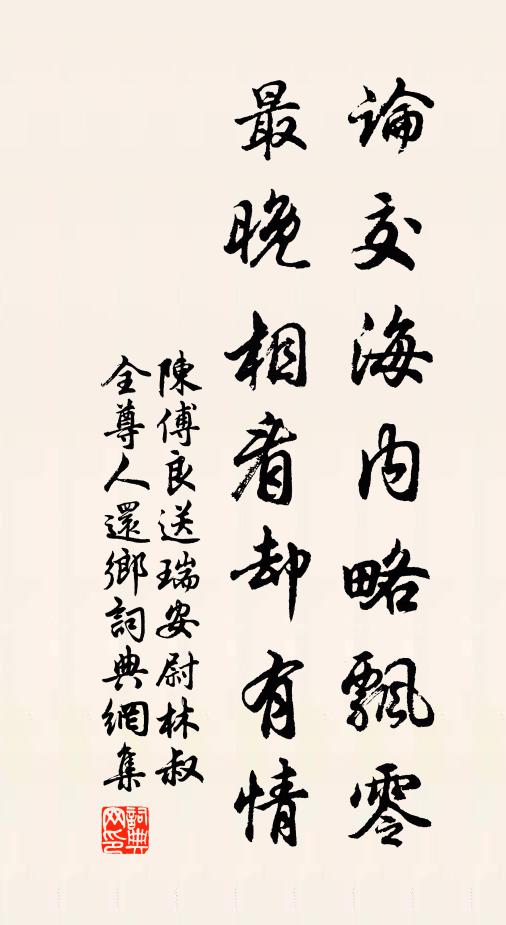 論交海内略飄零
最晚相看却有情
陳傅良送瑞安尉林叔
全尊人還鄉詞典網集
詞典網印